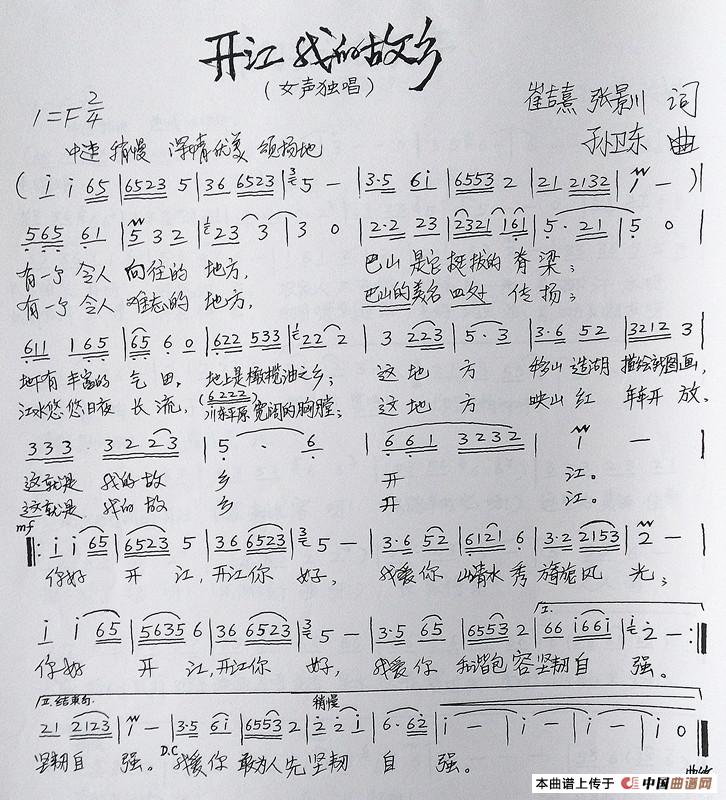 开江 我的故乡
(女声独唱)
1=F 2/4
崔吉熹 张景川 词
孙卫东 曲
中速 稍慢 深情优美 颂扬地
( i i 65 | 6523 5 | 36 6523 | 5 - | 3·5 6i | 6553 2 | 21 2132 | 1 - ) |
565 61 | 5 3 2 | 23 3 | 3 0 | 2·2 23 | 2321 161 | 5·21 | 5 0
有一个 令人 向往的 地方, 巴山 是它 挺拔的 脊 梁;
有一个 令人 难忘的 地方, 巴山的美名 四处 传扬;
611 165 | 65 6 0 | 622 533 | 22 2 | 3 223 | 5·3 | 3·6 52 | 3212 3
地下有 丰富的 气 田, 地上是橄榄油之乡; 这 地 方 移山 造湖 描绘新图画,
(6222)
江水悠 悠日夜 长 流, 川东平原 宽阔的胸膛; 这 地 方 映山 红 年年开 放,
333 3223 | 5 · 6 | 661 3232 | 1 -
这就是 我的故 乡 开 江。
这就是 我的故 乡 开 江。
mf
|: i i 65 | 6523 5 | 36 6523 | 5 - | 3·6 52 | 6121 6 | 3·2 2153 | 2 -
你好 开 江, 开江你 好, 我爱你 山清水 秀 旖旎风 光;
I.
i i 65 | 5635 6 | 36 6523 | 5 - | 3·5 65 | 6553 2 | 66 i66i | 2 - :|
你好 开 江, 开江你 好, 我爱你 和谐包 容坚韧自 强。
II. 结束句. 稍慢
21 2123 | 1 - | 3·5 6i | 6553 2 | 2 2 i | 6·62 | i - | i - | i - | i 0 ||
坚韧自 强。 D.C 我爱你 敢为人先坚韧 自 强。
本曲谱上传于 中国曲谱网